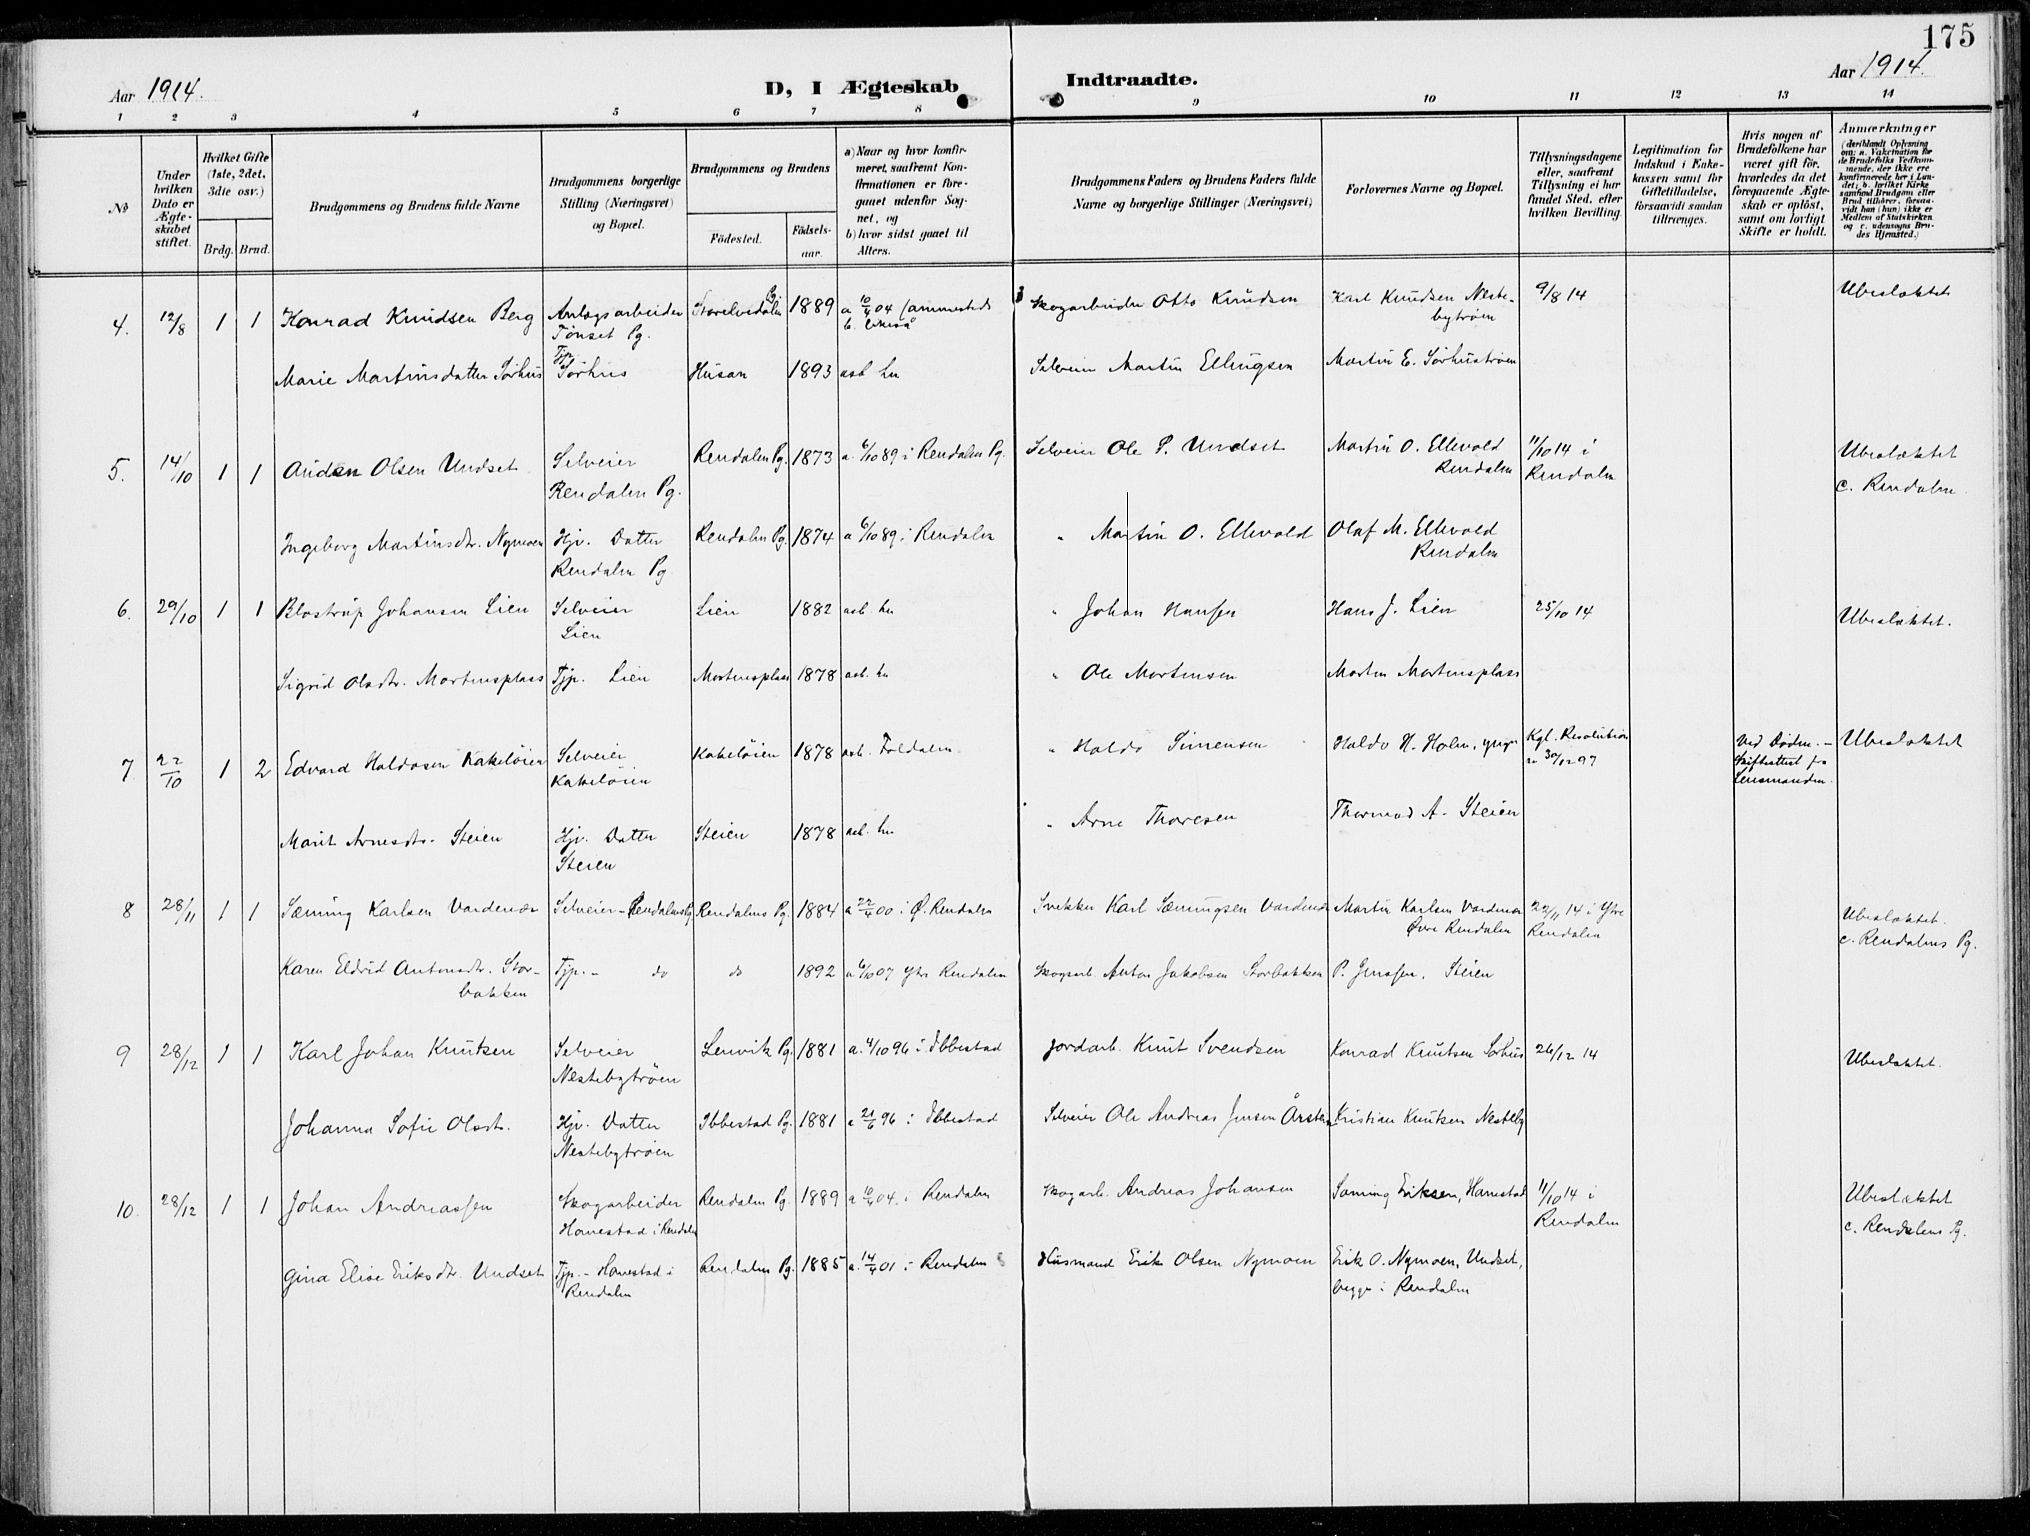 175
Aar 1914.
D, I Ægteskab Indtraadte.
Aar 1914.
1 2 3 4 5 6 7 8 9 10 11 12 13 14
No
Under hvilken Dato er Ægteskabet stiftet.
Hvilket Gifte (1ste, 2det, 3die osv.)
Brdg. Brud.
Brudgommens og Brudens fulde Navne
Brudgommens borgerlige Stilling (Næringsvei) og Bopæl.
Brudgommens og Brudens
Födested. Födselsaar.
a) Naar og hvor konfirmeret, saafremt Konfirmationen er foregaaet udenfor Sognet, og
b) hvor sidst gaaet til Alters.
Brudgommens Faders og Brudens Faders fulde Navne og borgerlige Stillinger (Næringsvei)
Forlovernes Navne og Bopæl.
Tillysningsdagene eller, saafremt Tillysning ei har fundet Sted, efter hvilken Bevilling.
Legitimation for Indskud i Enkekassen samt for Giftetilladelse, forsaavidt saadan tiltrænges.
Hvis nogen af Brudefolkene har været gift för, hvorledes da det foregaaende Ægteskab er oplöst, samt om lovligt Skifte er holdt.
Anmærkninger (deriblandt Oplysning om: a. Vakcination for de Brudefolks Vedkommende, der ikke ere konfirmerede her i Landet; b. hvilket Kirkesamfund Brudgom eller Brud tilhører, forsaavidt han (hun) ikke er Medlem af Statskirken og c. udensogns Brudes Hjemsted.)
4. 12/8 1 1 Konrad Knudsen Berg Anlægsarbeider Storelvedalen Pg. 1889 a 10/4 04 Skogarbeider Otto Knudsen Karl Knudsen Neste- 9/8 14 Ubeslæktet
Tönset Pg. b. bytröen
Marie Martinsdatter Sörhus Tjp. Sörhus Husan 1893 asb. her Selveier Martin Ellingsen Martin E. Sörhuströen
5. 14/10 1 1 Olsen Undset Selveier Rendalen Pg. 1873 a. 6/10 89 i Rendalen Pg. Selveier Ole P. Undset Martin O. Ellevold 11/10 14 i Ubeslæktet
Rendalen Pg. Rendalen Rendalen c. Rendalen
Ingeborg Martinsdtr. Nymoen Hjv. Datter Rendalen Pg. 1874 a 6/10 89 i Rendalen " Martin O. Ellevold Olaf M. Ellevold
Rendalen Pg. Rendalen
6. 29/10 1 1 Blostrup Johansen Lien Selveier Lien 1882 asb. her " Johan Hansen Hans J. Lien 25/10 14 Ubeslæktet.
Lien
Sigrid Olsdtr. Mortensplass Tjp. Lien Mortensplass 1878 asb. her " Ole Mortensen Morten Mortensplass
7 22/10 1 2 Edvard Haldosen Kakelöien Selveier Kakelöien 1878 asb. Foldalen " Haldo Simensen Haldo H. Holen, yngr Kgl. Resolution Ved Döden. - Ubeslæktet
Kakelöien 30/12 97 Skifteattest fra
Lensmanden.
Marit Arnesdtr. Steien Hjv. Datter Steien 1878 asb. her " Arne Thoresen Thormod A. Steien
Steien
8 28/11 1 1 Sæming Karlsen Vardenær Selveier - Rendalens Pg. Rendalens Pg. 1884 a 22/4 00 i Ø. Rendalen Karl Sæmingsen Vardenær Martin Karlsen Vardenær 22/11 14 i Ytre Ubeslæktet.
Øvre Rendalen Rendalen c. Rendalens Pg.
Karen Eldrid Antonsdtr. Stor- Tjp. - do do 1892 a 6/10 07 Ytre Rendalen Skogarb. Anton Jakobsen Storbakken P. Jenssen, Steien
bakken
9 28/12 1 1 Karl Johan Knutsen Selveier Lenvik Pg. 1881 a. 4/10 96 i Ibbestad Jordarb. Knut Svendsen Konrad Knutsen Sörhus 26/12 14 Ubeslæktet.
Nestebytröen
Johanna Sofie Olsdt. Hjv. Datter Ibbestad Pg. 1881 a 21/6 96 i Ibbestad Selveier Ole Andreas Jensen Årstein Kristian Knutsen Nesteby
Nestebytröen
10. 28/12 1 1 Johan Andreassen Skogarbeider Rendalen Pg. 1889 a 10/4 04. i Rendalen Skogarb. Andreas Johansen Sæming Eriksen, Hanestad 11/10 14 i Ubeslæktet
Hanestad i Rendalen Rendalen c. Rendalens Pg.
Gina Elise Eriksdtr. Undset Tjp. - Hanestad i Rendalen Pg. 1885 a. 14/4 01 i Rendalen Husmand Erik Olsen Nymoen Erik O. Nymoen, Undset,
Rendalen begge i Rendalen